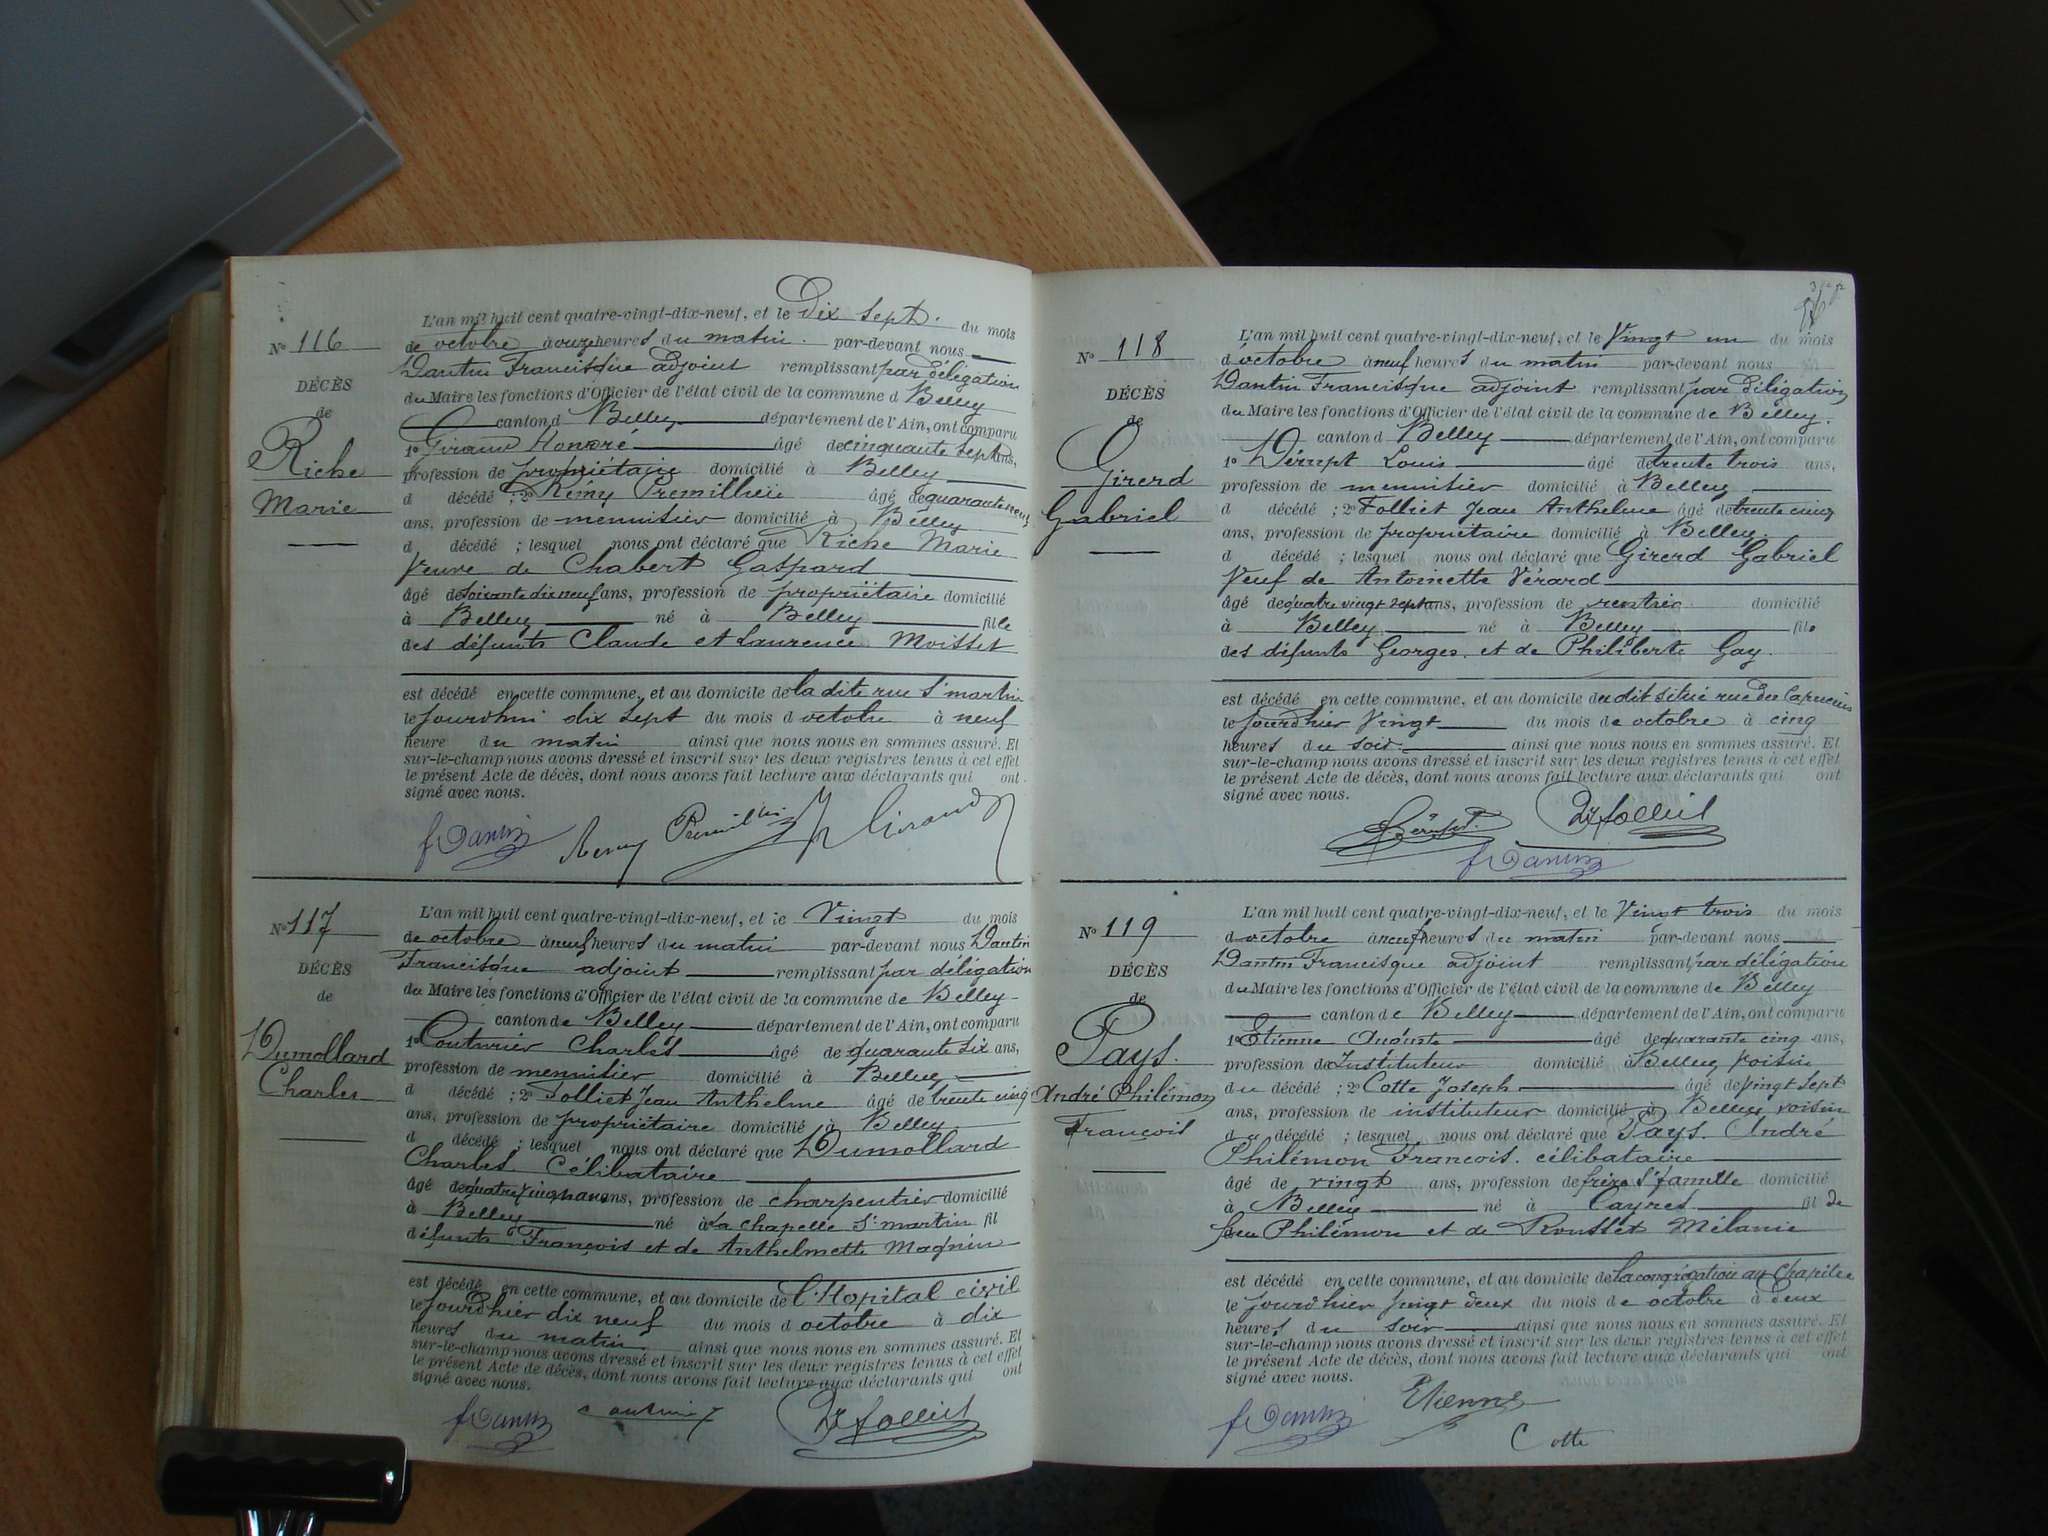 N° 116
DÉCÈS
de
Riche
Marie
L'an mil huit cent quatre-vingt-dix-neuf, et le Dix sept. du mois
de octobre à onze heures du matin. par-devant nous
Dantin Francisque adjoint remplissant par délégation
du Maire les fonctions d'Officier de l'état civil de la commune d Belley
canton d Belley département de l'Ain, ont comparu
1° Giraud Honoré âgé de cinquante sept ans,
profession de propriétaire domicilié à Belley
d décédé ; 2° Rémy Premillieu âgé de quarante neuf
ans, profession de ménuisier domicilié à Belley
d décédé ; lesquel nous ont déclaré que Riche Marie
Veuve de Chabert Gaspard
âgé de soixante dix neuf ans, profession de propriétaire domicilié
à Belley né à Belley fille
des défunts Claude et Laurence Moisset
est décédé en cette commune, et au domicile de la dite rue St martin
le jourdhui dix sept du mois d octobre à neuf
heure du matin ainsi que nous nous en sommes assuré. Et
sur-le-champ nous avons dressé et inscrit sur les deux registres tenus à cet effet
le présent Acte de décès, dont nous avons fait lecture aux déclarants qui ont
signé avec nous.
f Dantin Remy Premillieu Giraud
N° 117
DÉCÈS
de
Dumollard
Charles
L'an mil huit cent quatre-vingt-dix-neuf, et le Vingt du mois
de octobre à neuf heures du matin par-devant nous Dantin
Francisque adjoint remplissant par délégation
du Maire les fonctions d'Officier de l'état civil de la commune de Belley
canton de Belley département de l'Ain, ont comparu
1° Couturier Charles âgé de quarante six ans,
profession de menuisier domicilié à Belley
d décédé ; 2° Folliet Jean Anthelme âgé de trente cinq
ans, profession de propriétaire domicilié à Belley
d décédé ; lesquel nous ont déclaré que Dumollard
Charles Célibataire
âgé de ans, profession de charpentier domicilié
à Belley né à La chapelle St martin fil
défunts François et de Anthelmette Magnin
est décédé en cette commune, et au domicile de l'Hopital civil
le jourdhier dix neuf du mois d octobre à dix
heures du matin ainsi que nous nous en sommes assuré. Et
sur-le-champ nous avons dressé et inscrit sur les deux registres tenus à cet effet
le présent Acte de décès, dont nous avons fait lecture aux déclarants qui ont
signé avec nous.
f Dantin Couturier Folliet
N° 118
DÉCÈS
de
Girerd
Gabriel
L'an mil huit cent quatre-vingt-dix-neuf, et le Vingt un du mois
d'octobre à neuf heures du matin par-devant nous
Dantin Francisque adjoint remplissant par délégation
du Maire les fonctions d'Officier de l'état civil de la commune de Belley.
canton d Belley département de l'Ain, ont comparu
1° Dérupt Louis âgé de trente trois ans,
profession de menuisier domicilié à Belley
d décédé ; 2° Folliet Jean Anthelme âgé de trente cinq
ans, profession de propriétaire domicilié à Belley.
d décédé ; lesquel nous ont déclaré que Girerd Gabriel
Veuf de Antoinette Vérard
âgé de quatre vingt sept ans, profession de rentier domicilié
à Belley né à Belley fils
des défunts Georges et de Philiberte Gay.
est décédé en cette commune, et au domicile du dit situé rue des Capucins
le jourdhier Vingt du mois de octobre à cinq
heures du soir. ainsi que nous nous en sommes assuré. Et
sur-le-champ nous avons dressé et inscrit sur les deux registres tenus à cet effet
le présent Acte de décès, dont nous avons fait lecture aux déclarants qui ont
signé avec nous.
Dérupt. Folliet
f Dantin
N° 119
DÉCÈS
de
Pays.
André Philémon
François
L'an mil huit cent quatre-vingt-dix-neuf, et le Vingt trois du mois
d octobre à neuf heures du matin par-devant nous
Dantin Francisque adjoint remplissant par délégation
du Maire les fonctions d'Officier de l'état civil de la commune de Belley
canton de Belley département de l'Ain, ont comparu
1° Etienne Auguste âgé de quarante cinq ans,
profession de Instituteur domicilié à Belley voisin
du décédé ; 2° Cotte Joseph âgé de vingt sept
ans, profession de instituteur domicilié à Belley voisin
du décédé ; lesquel nous ont déclaré que Pays. André
Philémon François. célibataire
âgé de vingt ans, profession de frère Ste famille domicilié
à Belley né à Cayres fil de
feu Philémon et de Rousset Mélanie
est décédé en cette commune, et au domicile de la congrégation au Chapitre
le jourdhier vingt deux du mois de octobre à deux
heures du soir ainsi que nous nous en sommes assuré. Et
sur-le-champ nous avons dressé et inscrit sur les deux registres tenus à cet effet
le présent Acte de décès, dont nous avons fait lecture aux déclarants qui ont
signé avec nous.
f Dantin Etienne
Cotte